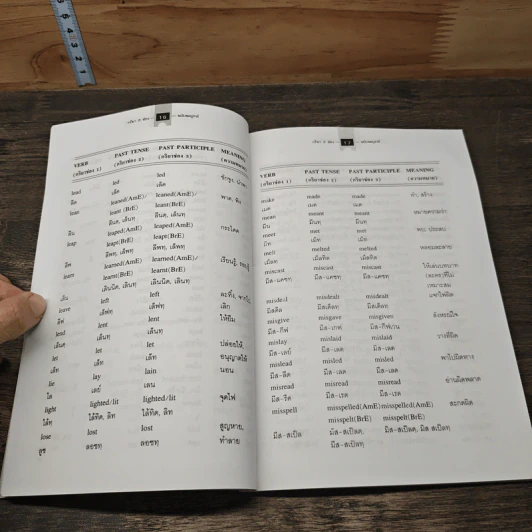 16
VERB PAST TENSE PAST PARTICIPLE MEANING
(กริยาช่อง 1) (กริยาช่อง 2) (กริยาช่อง 3) (ความหมาย)
lead led led
ลีด เล็ด เล็ด
lean leaned(AmE)/ leaned(AmE)/ พาด, พิง
leant (BrE) leant(BrE)
ลีน ลีนด, เล็นท ลีนด, เล็นท
leap leaped(AmE) leaped(AmE) กระโดด
leapt(BrE) leapt(BrE)
ลีพ ลีพทุ, เล็พทุ ลีพทุ, เล็พทุ
learn learned(AmE) learned(AmE)/ เรียนรู้
learnt(BrE) learnt(BrE)
leave left left ละทิ้ง
ลีฟ เล็ฟทฺ เล็ฟทฺ เลิก
lend lent lent ให้ยืม
เล็นดฺ เล็นทฺ เล็นทฺ
let let let ปล่อยให้,
เล็ท เล็ท เล็ท อนุญาตให้
lie lay lain นอน
ไล เลย์ เลน
light lighted/lit lighted/lit จุดไฟ
ไล้ทฺ ไล้ทิด, ลิท ไล้ทิด, ลิท
lose lost lost สูญหาย,
ลูซ ลอซทฺ ลอซทฺ ทำลาย
17
VERB PAST TENSE PAST PARTICIPLE MEANING
(กริยาช่อง 1) (กริยาช่อง 2) (กริยาช่อง 3) (ความหมาย)
make made made ทำ, สร้าง
เมค เมด เมด
mean meant meant หมายความว่า
มีน เม็นทฺ เม็นทฺ
meet met met พบ, ประสบ
มีท เม็ท เม็ท
melt melted melted หลอมละลาย
เม็ลทฺ เม็ลทิด เม็ลทิด
miscast miscast miscast ให้เล่นบทบาท
มิส-แคซทฺ มิส-แคซทฺ มิส-แคซทฺ (ละคร)ที่ไม่
เหมาะสม
misdeal misdealt misdealt แจกไพ่ผิด
มิสดีล มิสเด็ลทฺ มิสเด็ลทฺ
misgive misgave misgiven
มิส-กีฟ มิส-เกฟ มิส-กีฟเว่น
mislay mislaid mislaid วางที่ผิด
มิส-เลย์ มิส-เลด มิส-เลด
mislead misled misled พาไปผิดทาง
มิส-ลีด มิส-เล็ด มิส-เล็ด
misread misread misread อ่านผิดพลาด
มิส-รีด มิส-เรด มิส-เรด
misspell misspelled(AmE) misspelled(AmE) สะกดผิด
misspelt(BrE) misspelt(BrE)
มิส-สเป็ล มิส-สเป็ลดฺ, มิส-สเป็ลดฺ, มิส สเป็ลทฺ
มิส-สเป็ลทฺ